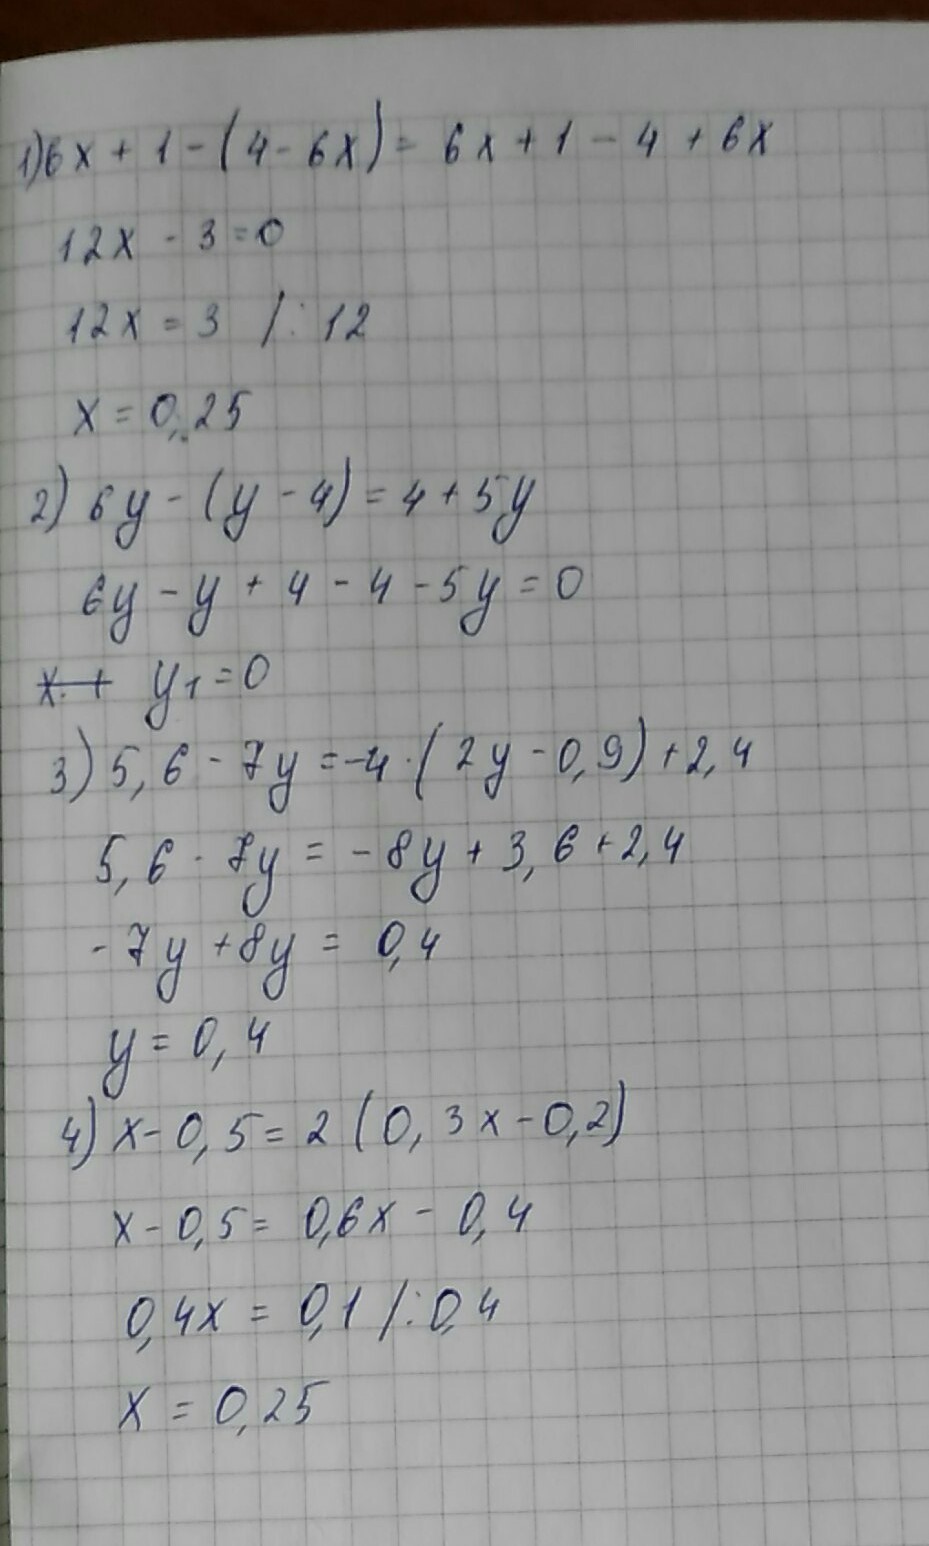 1) 6x + 1 - (4 - 6x) = 6x + 1 - 4 + 6x
12x - 3 = 0
12x = 3 /: 12
x = 0,25
2) 6y - (y - 4) = 4 + 5y
6y - y + 4 - 4 - 5y = 0
y1 = 0
3) 5,6 - 7y = -4 · (2y - 0,9) + 2,4
5,6 - 7y = - 8y + 3,6 + 2,4
- 7y + 8y = 0,4
y = 0,4
4) x - 0,5 = 2 (0,3x - 0,2)
x - 0,5 = 0,6x - 0,4
0,4x = 0,1 /: 0,4
x = 0,25